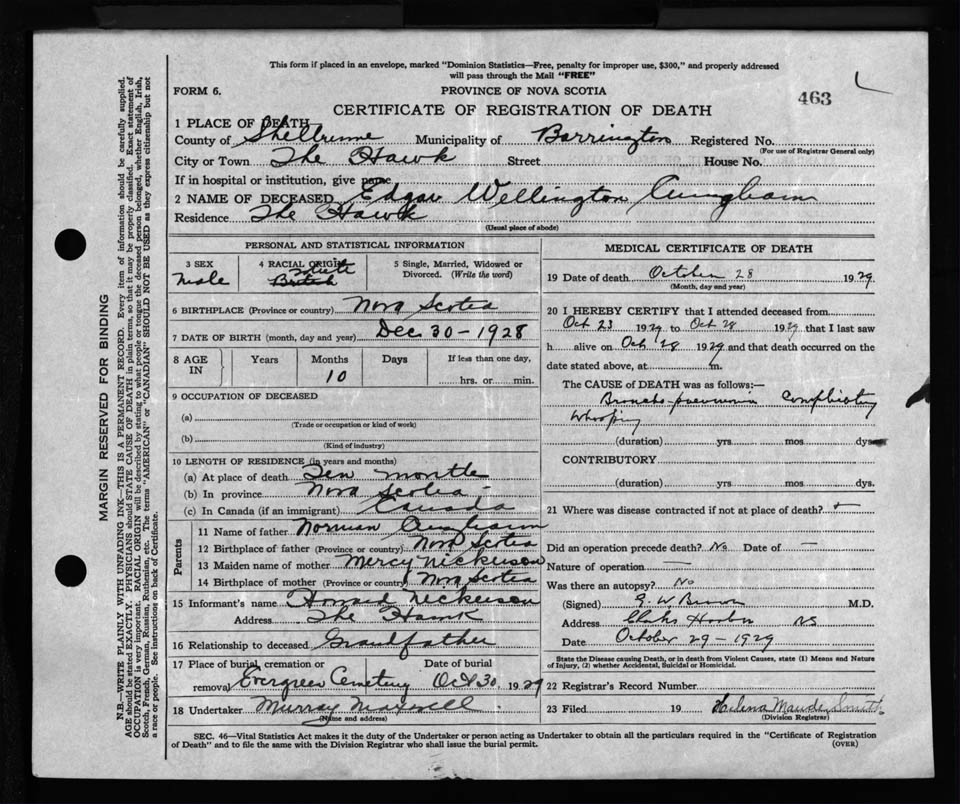 This form if placed in an envelope, marked "Dominion Statistics—Free, penalty for improper use, $300," and properly addressed
will pass through the Mail "FREE"
FORM 6.
PROVINCE OF NOVA SCOTIA
463
CERTIFICATE OF REGISTRATION OF DEATH
1 PLACE OF DEATH
County of Shelburne Municipality of Barrington Registered No.
(For use of Registrar General only)
City or Town The Hawk Street House No.
If in hospital or institution, give name
2 NAME OF DECEASED Edgar Wellington
Residence The Hawk
(Usual place of abode)
PERSONAL AND STATISTICAL INFORMATION
3 SEX
male
4 RACIAL ORIGIN
White
British
5 Single, Married, Widowed or
Divorced. (Write the word)
6 BIRTHPLACE (Province or country) Nova Scotia
7 DATE OF BIRTH (month, day and year) Dec 30-1928
8 AGE
IN
Years
Months
10
Days
If less than one day,
hrs. or min.
9 OCCUPATION OF DECEASED
(a)
(Trade or occupation or kind of work)
(b)
(Kind of industry)
10 LENGTH OF RESIDENCE (in years and months)
(a) At place of death Ten months
(b) In province Nova Scotia
(c) In Canada (if an immigrant) Canada
Parents
11 Name of father Norman
12 Birthplace of father (Province or country) Nova Scotia
13 Maiden name of mother Mercy Nickerson
14 Birthplace of mother (Province or country) Nova Scotia
15 Informant's name Howard Nickerson
Address The Hawk
16 Relationship to deceased Grandfather
17 Place of burial, cremation or
removal Evergreen Cemetery
Date of burial
Oct 30, 1929
18 Undertaker Murray Maxwell
(Name and address)
MEDICAL CERTIFICATE OF DEATH
19 Date of death October 28 1929
(Month, day and year)
20 I HEREBY CERTIFY that I attended deceased from
Oct 23 1929 to Oct 28 1929 that I last saw
h alive on Oct 28 1929 and that death occurred on the
date stated above, at m.
The CAUSE of DEATH was as follows:—
Broncho-pneumonia Complicating
Whooping
(duration) yrs mos dys
CONTRIBUTORY
(duration) yrs. mos. dys.
21 Where was disease contracted if not at place of death?
Did an operation precede death? No Date of —
Nature of operation —
Was there an autopsy? No
(Signed) M.D.
Address Clarks Harbor NS
Date October 29-1929
State the Disease causing Death, or in death from Violent Causes, state (1) Means and Nature
of Injury, (2) whether Accidental, Suicidal or Homicidal.
22 Registrar's Record Number
23 Filed 19 Helena Maude Smith
(Division Registrar)
SEC. 46—Vital Statistics Act makes it the duty of the Undertaker or person acting as Undertaker to obtain all the particulars required in the "Certificate of Registration
of Death" and to file the same with the Division Registrar who shall issue the burial permit.
(OVER)
MARGIN RESERVED FOR BINDING
N.B.—WRITE PLAINLY WITH UNFADING INK—THIS IS A PERMANENT RECORD. Every item of information should be carefully supplied.
AGE should be stated EXACTLY. PHYSICIANS should STATE CAUSE OF DEATH in plain terms, so that it may be properly classified. Exact statement of
OCCUPATION is very important. RACIAL ORIGIN will be described by stating to what people or tongue the deceased person belonged, whether English, Irish,
Scotch, French, German, Russian, Ruthenian, etc. The terms "AMERICAN" or "CANADIAN" SHOULD NOT BE USED as they express citizenship but not
a race or people. See instructions on back of Certificate.